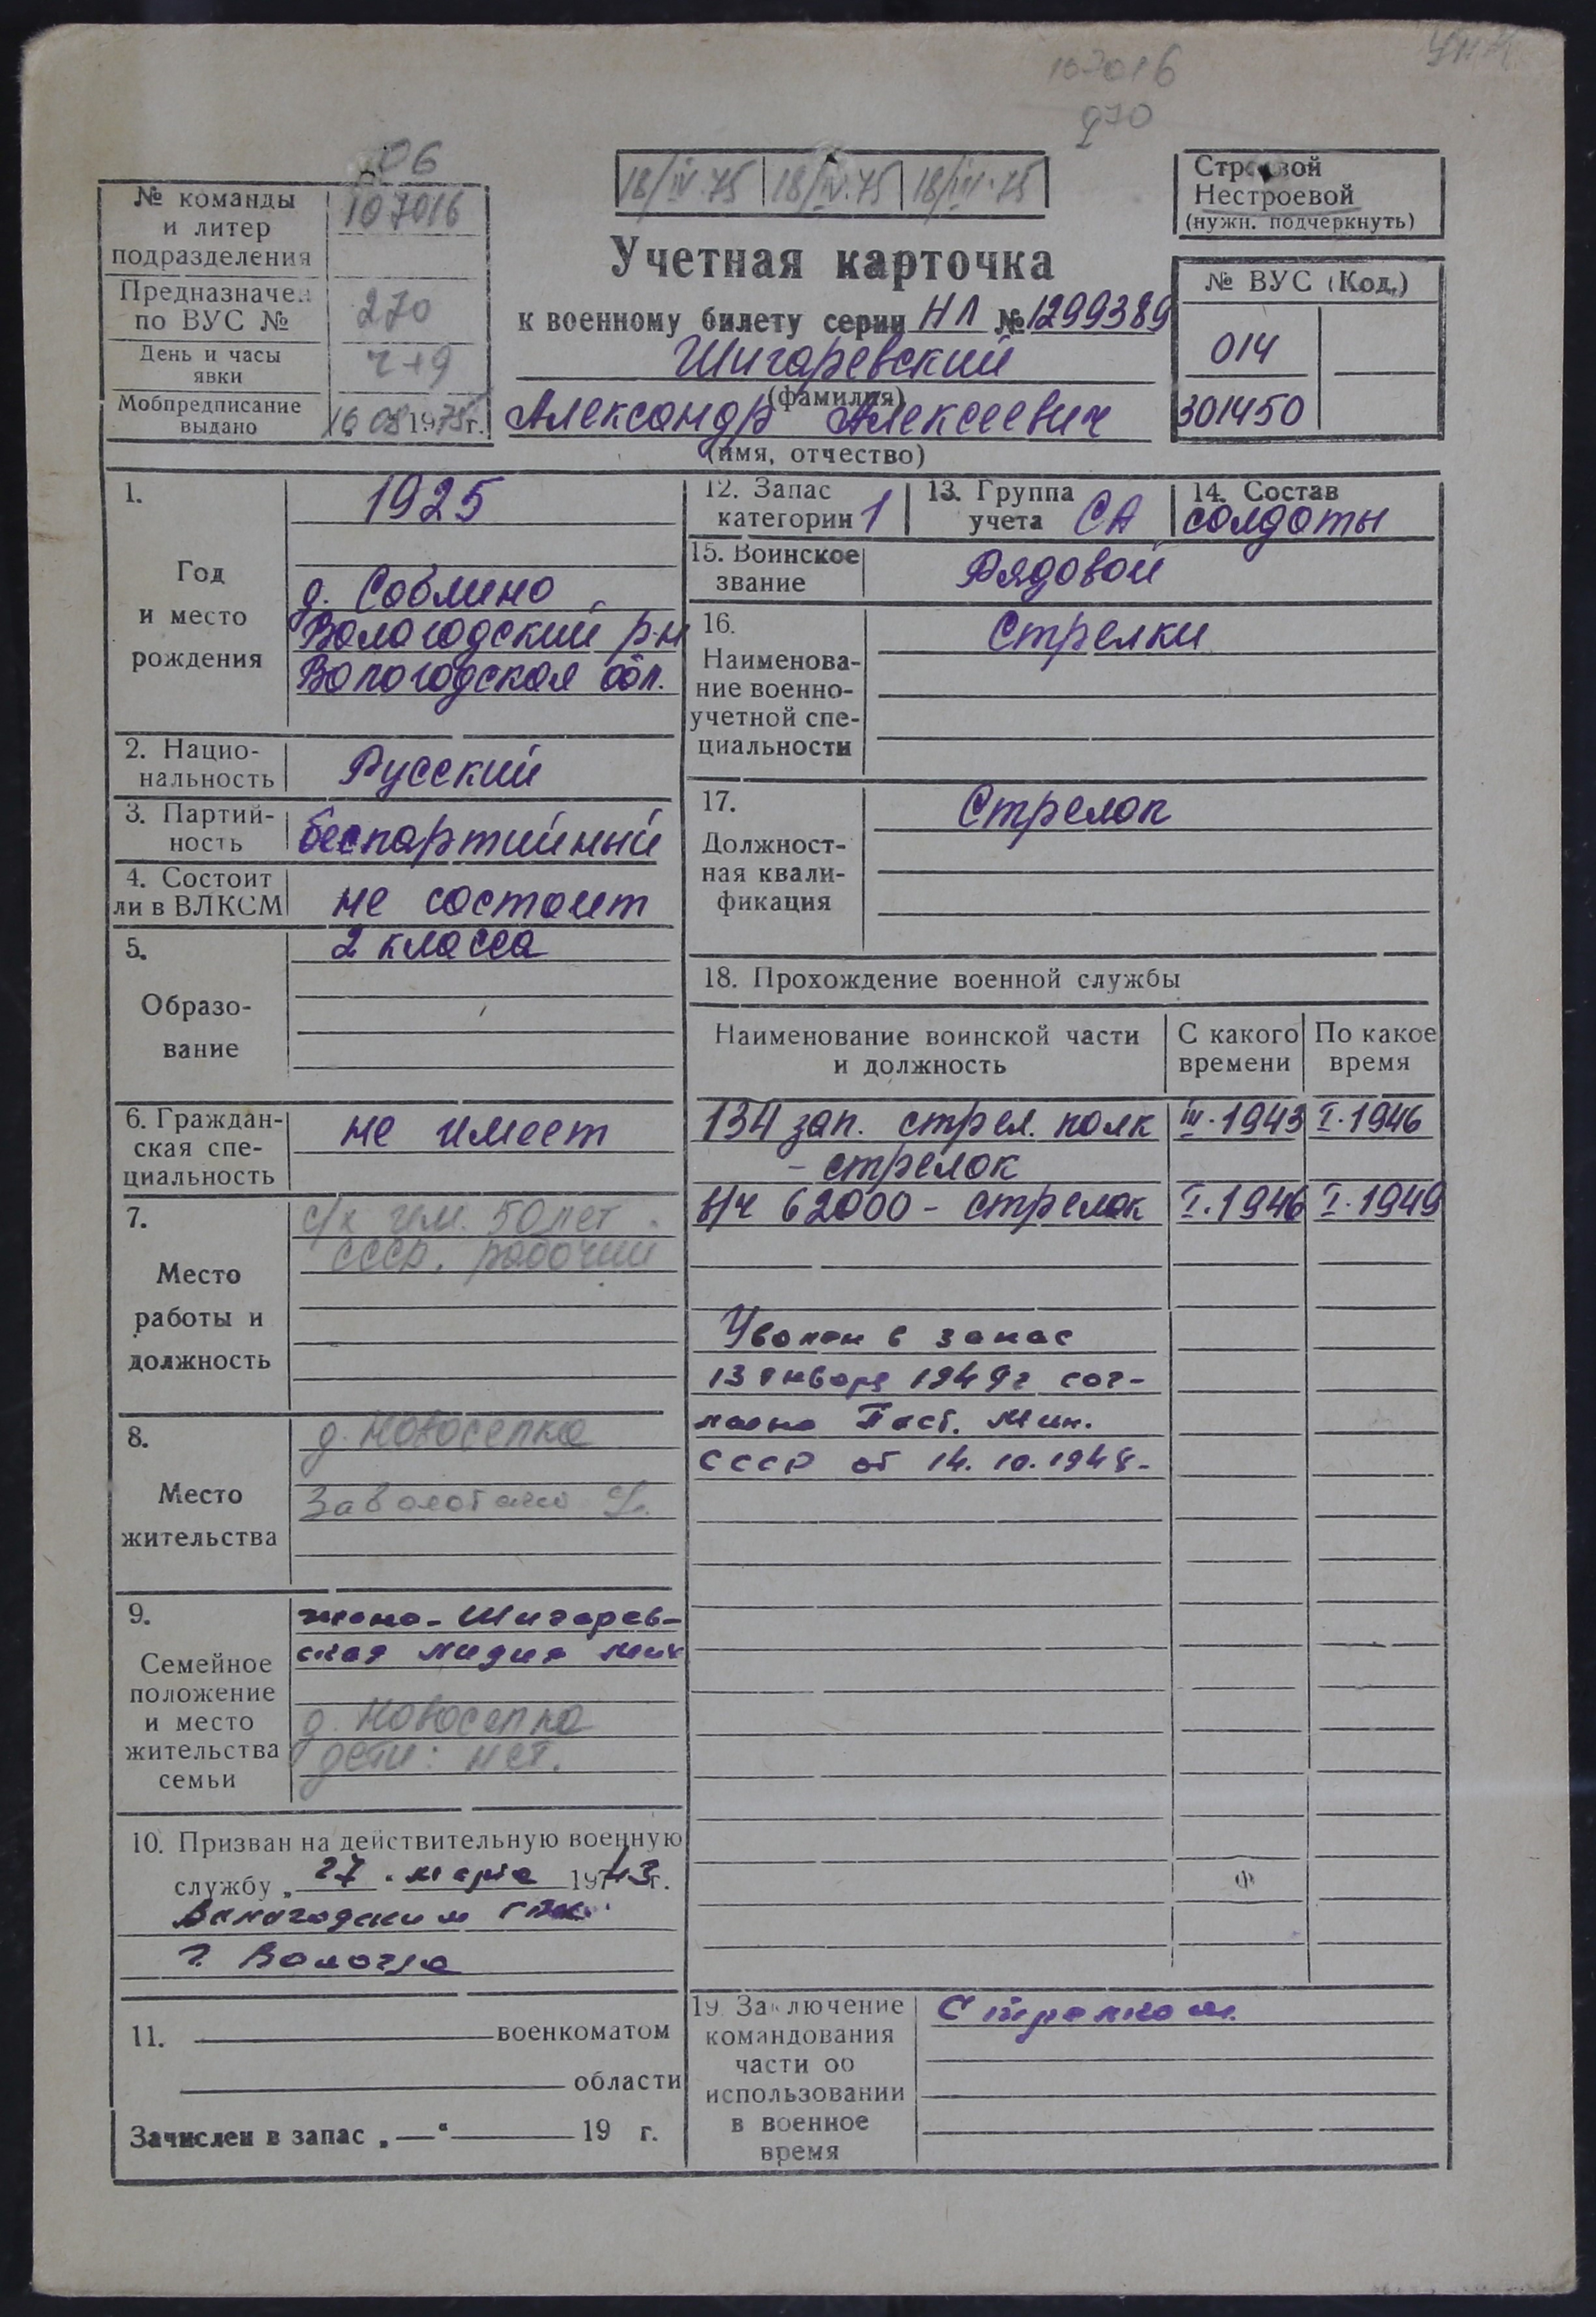 107016
270
06
№ команды
и литер
подразделения
107016
Предназначен
по ВУС №
270
День и часы
явки
ч+9
Мобпредписание
выдано
16 08 1975г.
18/IV.75 18/IV.75 18/III.75
Учетная карточка
к военному билету серии НЛ № 1299389
Шигаревский
(фамилия)
Александр Алексеевич
(имя, отчество)
Строевой
Нестроевой
(нужн. подчеркнуть)
№ ВУС (Код.)
014
301450
1.
Год
и место
рождения
1925
д. Соблино
Вологодский р-н
Вологодская обл.
2. Нацио-
нальность
Русский
3. Партий-
ность
беспартийный
4. Состоит
ли в ВЛКСМ
не состоит
5.
Образо-
вание
2 класса
6. Граждан-
ская спе-
циальность
не имеет
7.
Место
работы и
должность
с/х им. 50 лет
СССР, рабочий
8.
Место
жительства
д. Новоселка
9.
Семейное
положение
и место
жительства
семьи
жена - Шигарев-
ская Лидия Мих
д. Новоселка
дети: нет.
10. Призван на действительную военную
службу „27" марта 1943г.
Вологодским ГВК
г. Вологда
11. военкоматом
области
Зачислен в запас „—" 19 г.
12. Запас
категории 1
13. Группа
учета СА
14. Состав
солдаты
15. Воинское
звание
Рядовой
16.
Наименова-
ние военно-
учетной спе-
циальности
Стрелки
17.
Должност-
ная квали-
фикация
Стрелок
18. Прохождение военной службы
Наименование воинской части
и должность
С какого
времени
По какое
время
134 зап. стрел. полк III.1943 I.1946
- стрелок
в/ч 62000 - стрелок I.1946 I.1949
Уволен в запас
13 января 1949г сог-
ласно Пост. Мин.
СССР от 14.10.1948.
19. Заключение
командования
части об
использовании
в военное
время
Стрелком.